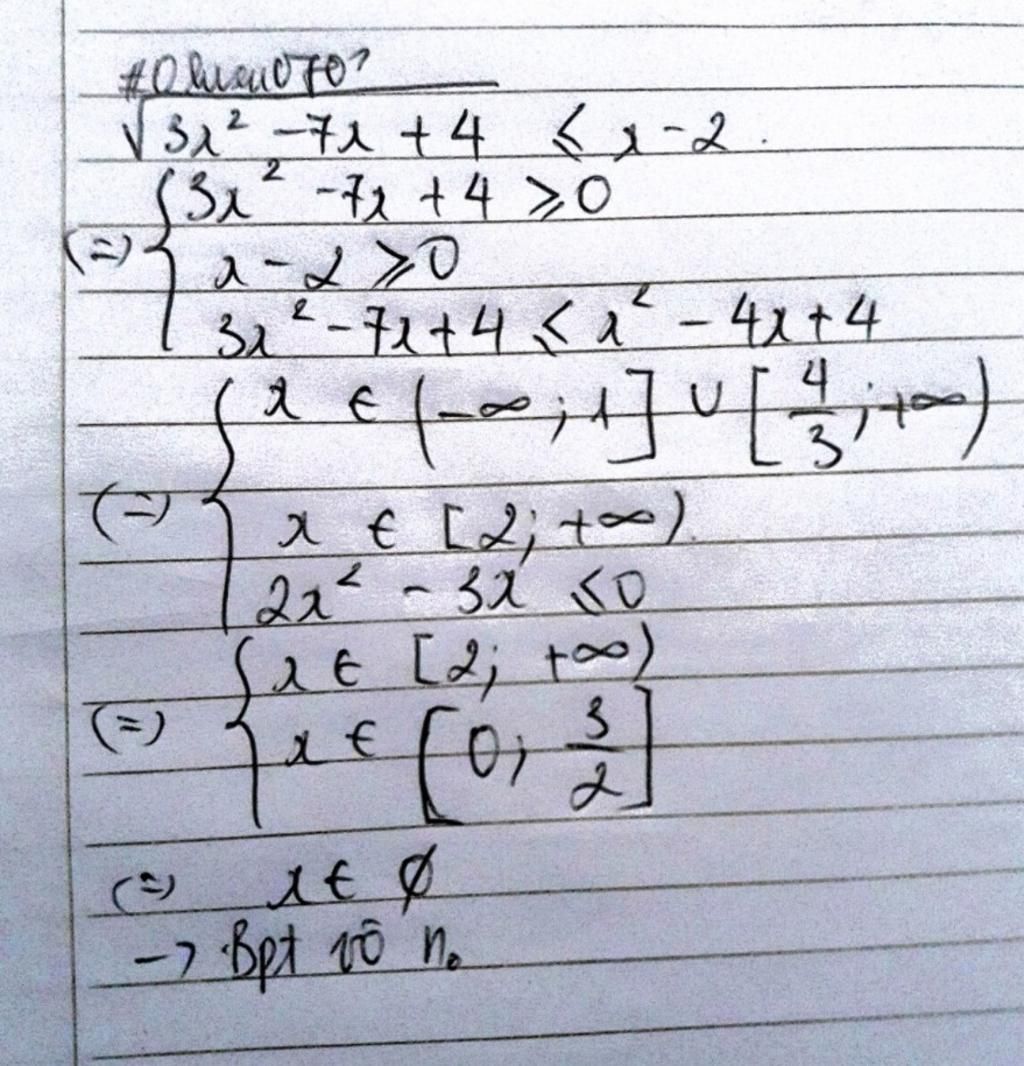 √(3x² - 7x + 4) ≤ x - 2.
{ 3x² - 7x + 4 ⩾ 0
(=) { x - 2 ⩾ 0
3x² - 7x + 4 ≤ x² - 4x + 4
{ x ∈ (-∞; 1] ∪ [4/3; +∞)
(=) { x ∈ [2; +∞)
2x² - 3x ≤ 0
{ x ∈ [2; +∞)
(=) { x ∈ [0; 3/2]
(=) x ∈ ∅
-> Bpt vô n.